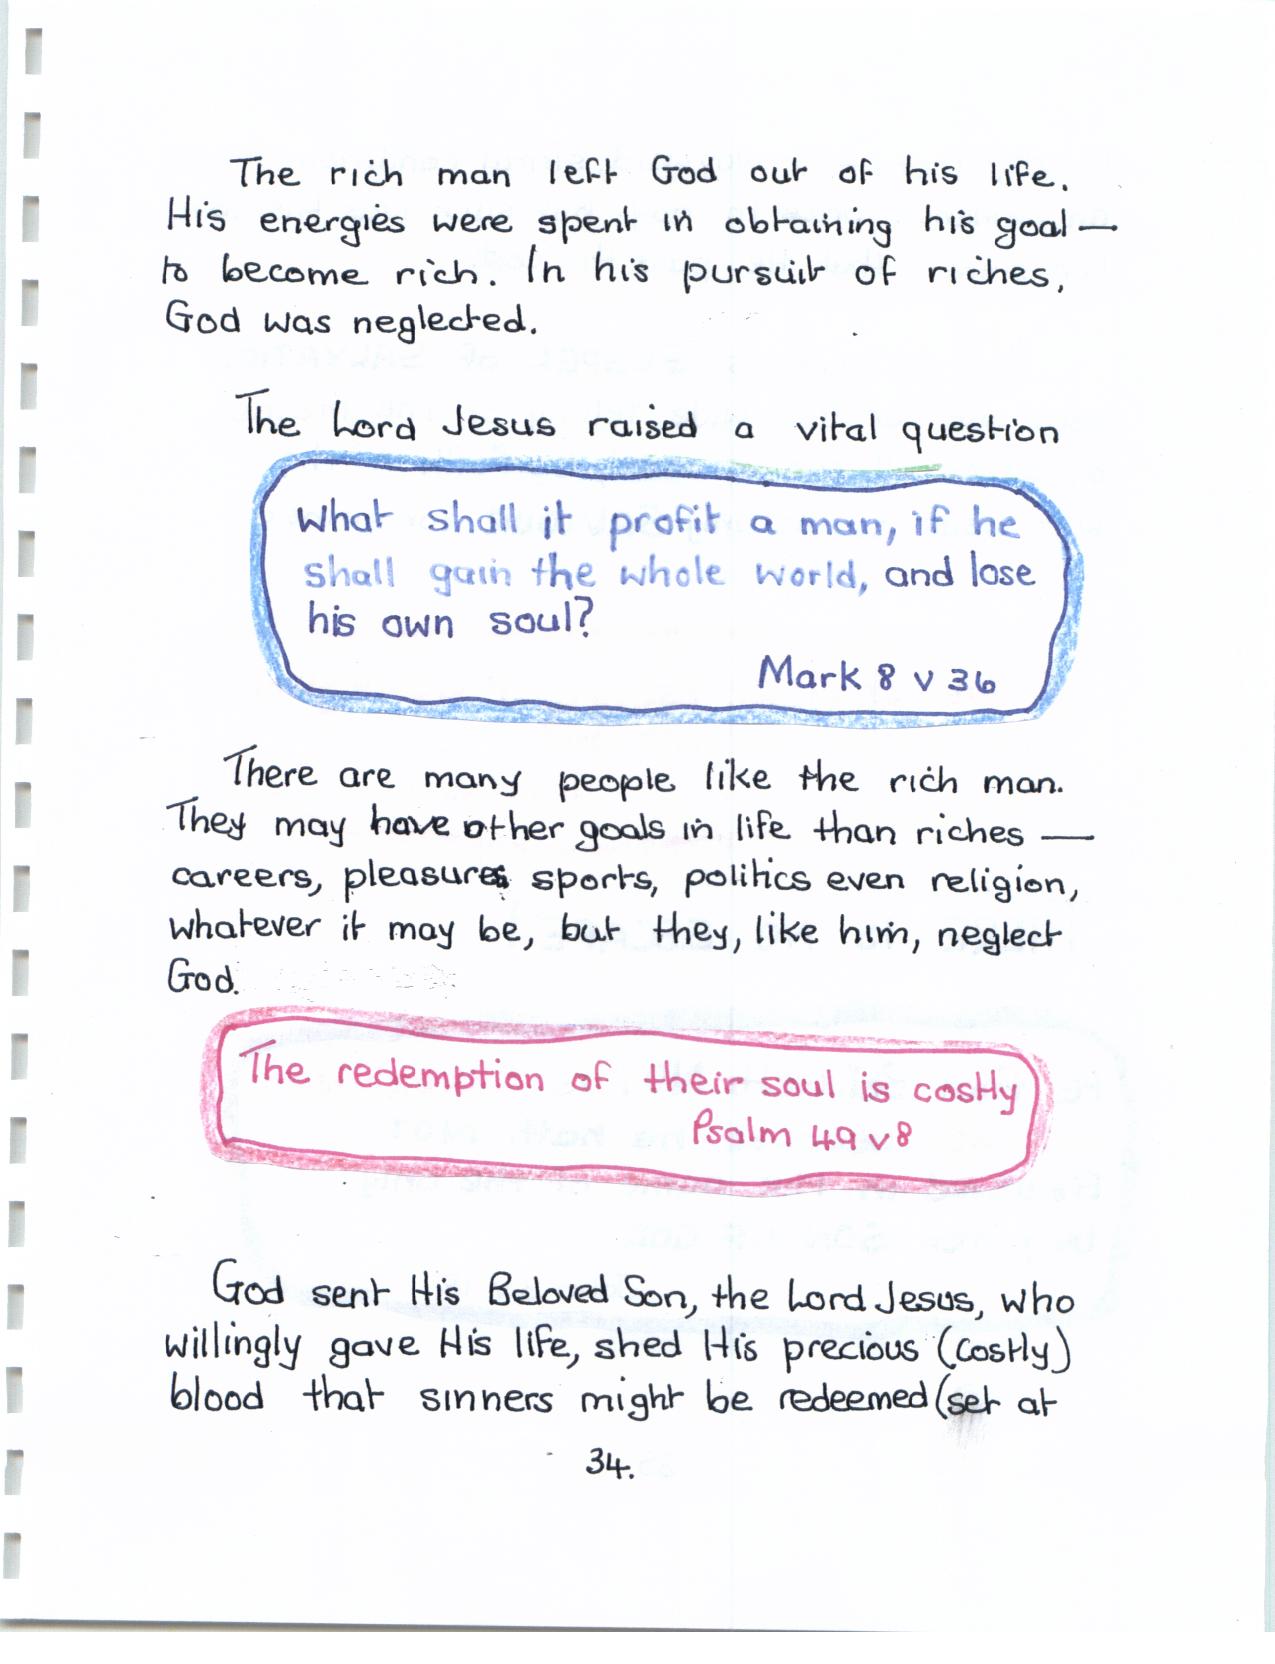 The rich man left God out of his life.
His energies were spent in obtaining his goal —
to become rich. In his pursuit of riches,
God was neglected.
The Lord Jesus raised a vital question
What shall it profit a man, if he
shall gain the whole world, and lose
his own soul?
Mark 8 v 36
There are many people like the rich man.
They may have other goals in life than riches —
careers, pleasures sports, politics even religion,
whatever it may be, but they, like him, neglect
God.
The redemption of their soul is costly
Psalm 49 v 8
God sent His Beloved Son, the Lord Jesus, who
willingly gave His life, shed His precious (costly)
blood that sinners might be redeemed (set at
34.